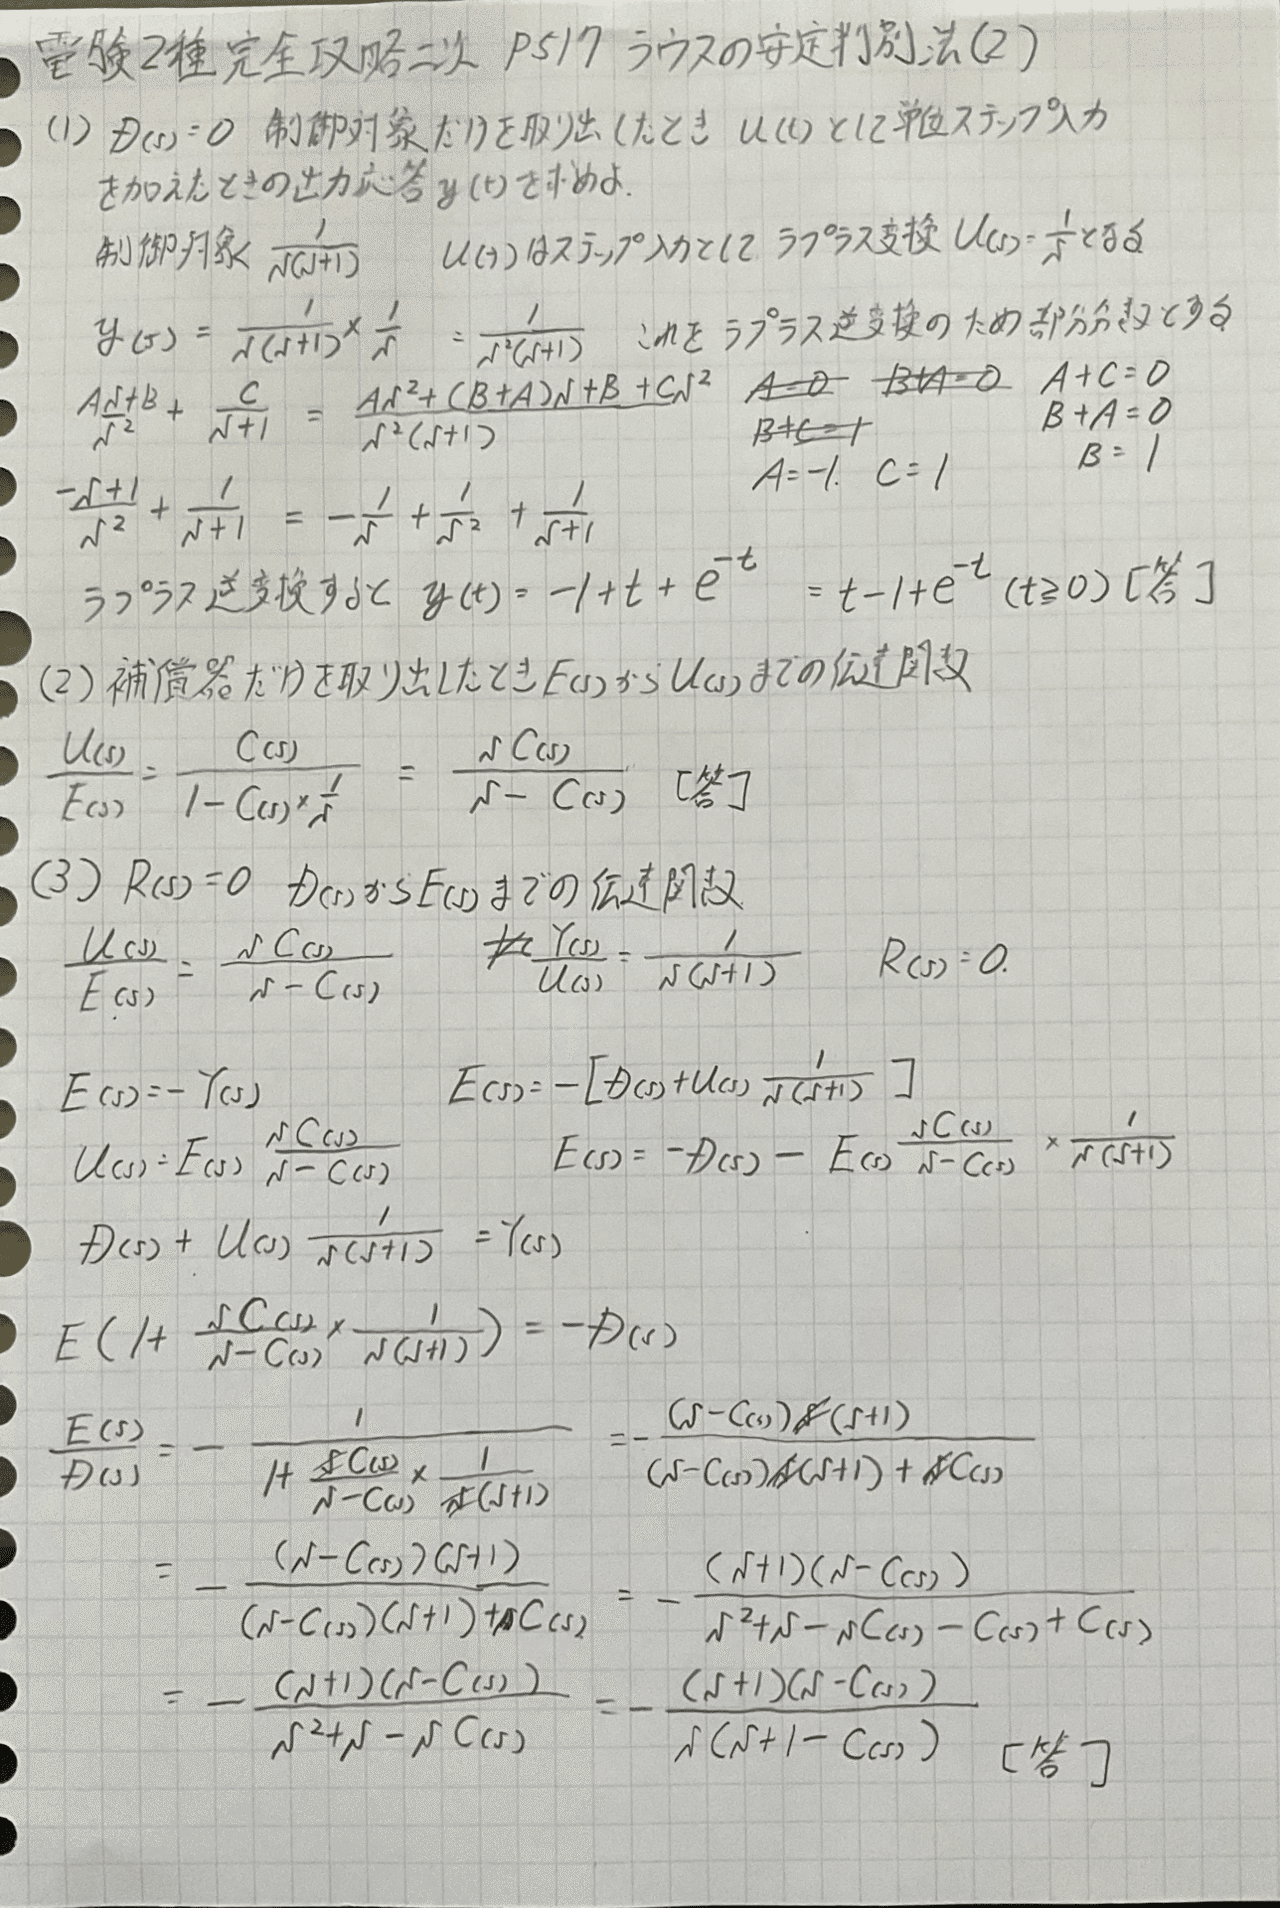 電験2種完全攻略二次 P517 ラウスの安定判別法(2)
(1) D(s)=0 制御対象だけを取り出したとき u(t)として単位ステップ入力
を加えたときの出力応答y(t)を求めよ.
制御対象 1/s(s+1) u(t)はステップ入力として ラプラス変換 U(s)=1/s となる
y(s) = 1/s(s+1) × 1/s = 1/s²(s+1) これをラプラス逆変換のため部分分数とする
(As+B)/s² + C/(s+1) = (As²+(B+A)s+B+Cs²)/s²(s+1) A=0 B+A=0 A+C=0
B+C=1 B+A=0
A=-1. C=1 B=1
(-s+1)/s² + 1/(s+1) = -1/s + 1/s² + 1/(s+1)
ラプラス逆変換すると y(t) = -1+t+e^-t = t-1+e^-t (t≧0) [答]
(2) 補償器だけを取り出したときE(s)からU(s)までの伝達関数
U(s)/E(s) = C(s)/(1-C(s)×1/s) = sC(s)/(s-C(s)) [答]
(3) R(s)=0 D(s)からE(s)までの伝達関数
U(s)/E(s) = sC(s)/(s-C(s)) Y(s)/U(s) = 1/s(s+1) R(s)=0.
E(s)=-Y(s) E(s)=-[D(s)+U(s) 1/s(s+1)]
U(s)=E(s) sC(s)/(s-C(s)) E(s)=-D(s)-E(s) sC(s)/(s-C(s)) × 1/s(s+1)
D(s)+U(s) 1/s(s+1) =Y(s)
E(1+ sC(s)/(s-C(s)) × 1/s(s+1)) = -D(s)
E(s)/D(s) = - 1/(1+ sC(s)/(s-C(s)) × 1/s(s+1)) = - (s-C(s))s(s+1)/((s-C(s))s(s+1)+sC(s))
= - (s-C(s))(s+1)/((s-C(s))(s+1)+C(s)) = - (s+1)(s-C(s))/(s²+s-sC(s)-C(s)+C(s))
= - (s+1)(s-C(s))/(s²+s-sC(s)) = - (s+1)(s-C(s))/s(s+1-C(s)) [答]